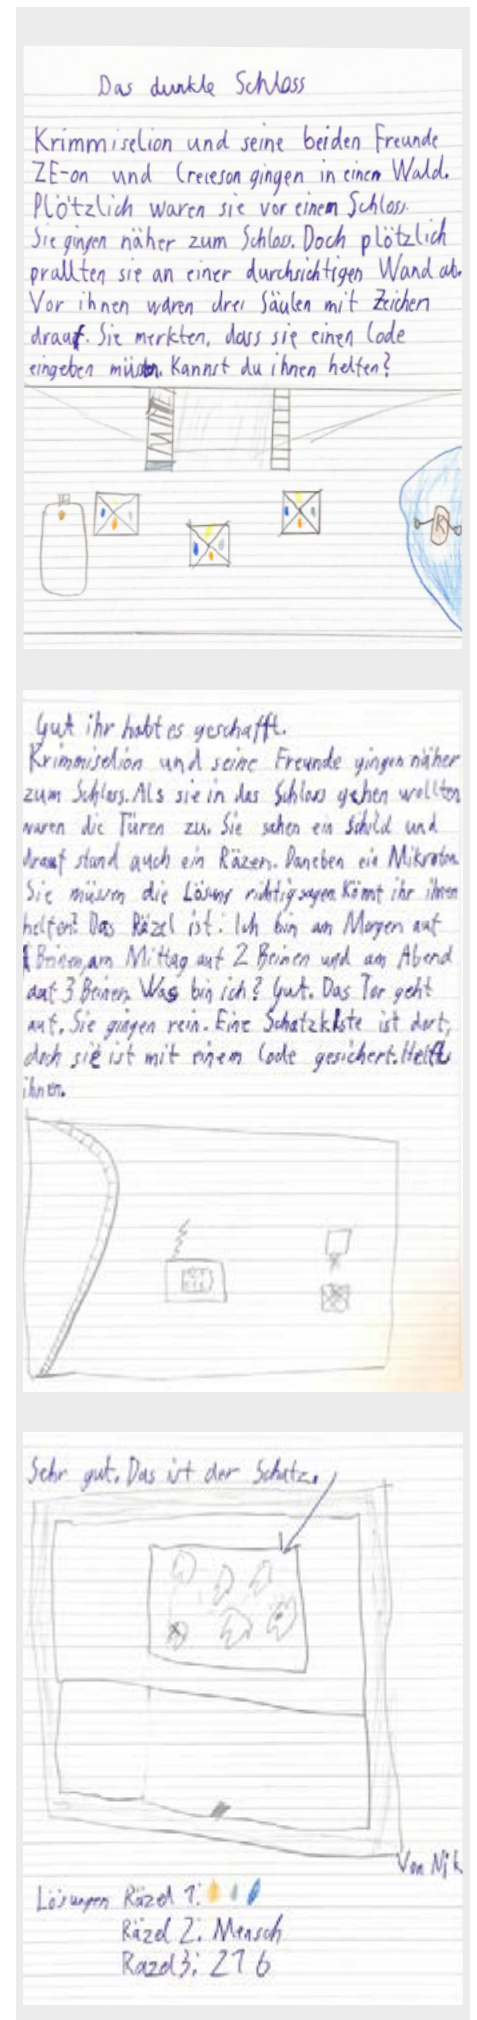 Das dunkle Schloss
Krimmiselion und seine beiden Freunde
ZE-on und Creieson gingen in einen Wald.
Plötzlich waren sie vor einem Schloss.
Sie gingen näher zum Schloss. Doch plötzlich
prallten sie an einer durchsichtigen Wand ab.
Vor ihnen waren drei Säulen mit Zeichen
drauf. Sie merkten, dass sie einen Code
eingeben müssen. Kannst du ihnen helfen?
R
Gut ihr habt es geschafft.
Krimmiselion und seine Freunde gingen näher
zum Schloss. Als sie in das Schloss gehen wollten
waren die Türen zu. Sie sahen ein Schild und
drauf stand auch ein Räzel. Daneben ein Mikrofon.
Sie müssen die Lösung richtig sagen. Könnt ihr ihnen
helfen? Das Räzel ist: Ich bin am Morgen auf
4 Beinen, am Mittag auf 2 Beinen und am Abend
auf 3 Beinen. Was bin ich? Gut. Das Tor geht
auf. Sie gingen rein. Eine Schatzkiste ist dort,
doch sie ist mit einem Code gesichert. Helft
ihnen.
Sehr gut. Das ist der Schatz.
Von Nik
Lösungen Räzel 1:
Räzel 2: Mensch
Razel 3: 216